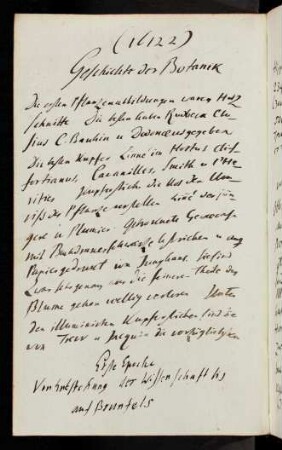 (1122)
Geschichte der Botanik
Die ersten Pflanzenabbildungen waren Holz
schnitte Die besten lieben Rudbeck Clu
sius C. Bauhin u Dodonaeus gegeben
Die besten Kupfer Linné im Hortus clif
fortianus, Cavanilles, Smith u l'He
ritier
riß der Pflanze vorstellen Linné der jün
gere u Plumier. Getrocknete Gewächse
mit Buchdruckerschwärze bestrichen u auf
Papier gedruckt von Junghans. Sie sind
gezogen wo die feineren Theile der
Blume gehen verloren Unter
den illuminirten Kupferstichen sind die
von Trew u Jacquin die vorzüglichsten
Erste Epoche
Von Entstehung der Wissenschaft bis
auf Brunfels